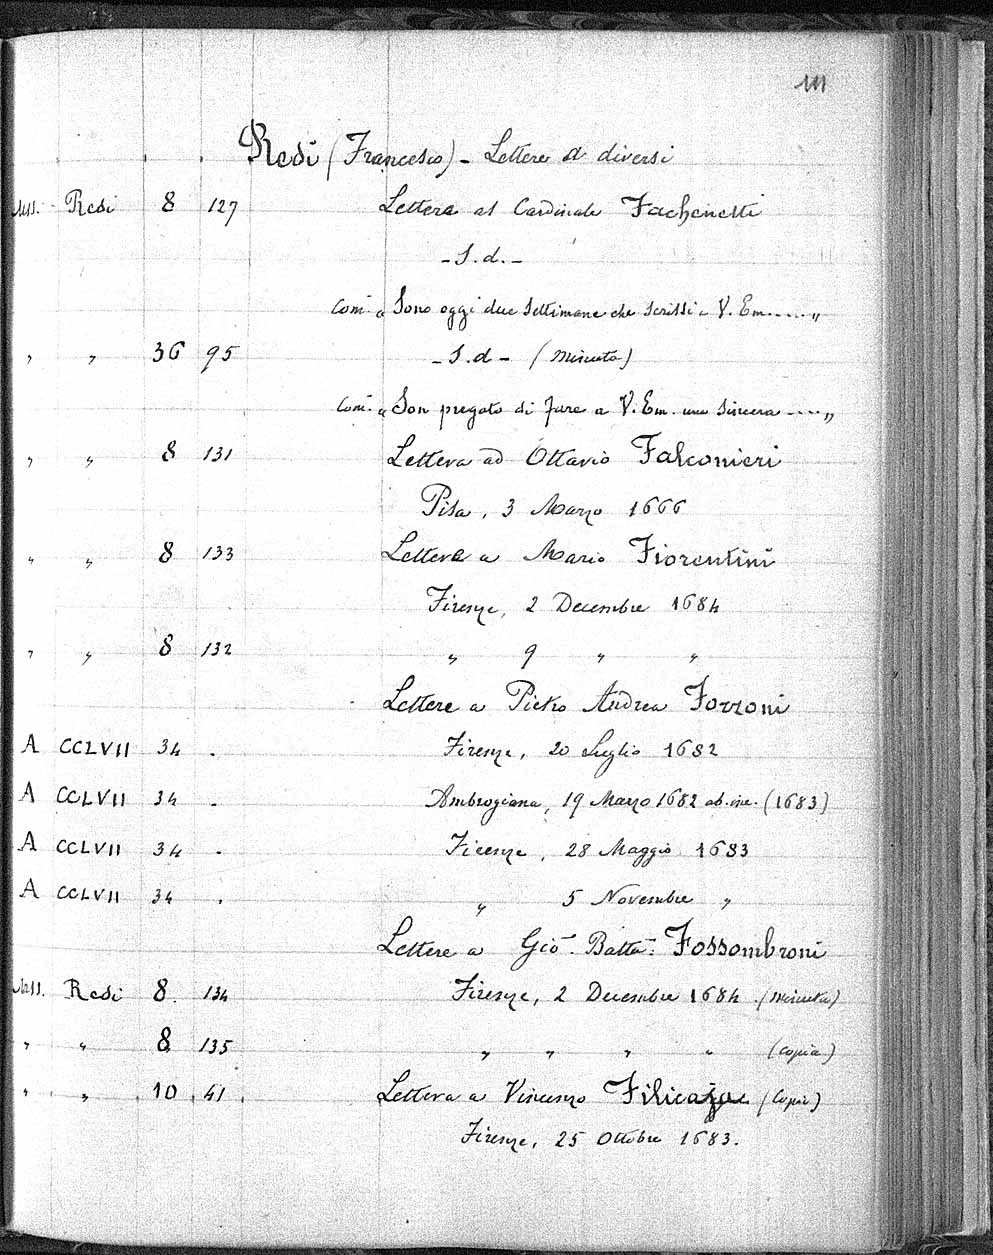 111
Redi (Francesco) - Lettere a diversi
Mss. Redi 8 127 Lettera al Cardinale Fachenetti
- S.d. -
Com. " Sono oggi due settimane che scrissi a V. Em. .... "
" " 36 95 - S.d - (minuta)
Com. " Son pregato di fare a V. Em. una sincera .... "
" " 8 131 Lettera ad Ottavio Falconieri
Pisa, 3 Marzo 1666
" " 8 133 Lettera a Mario Fiorentini
Firenze, 2 Decembre 1684
" " 8 132 " 9 " "
Lettere a Pietro Andrea Forzoni
A CCLVII 34 . Firenze, 20 Luglio 1682
A CCLVII 34 . Ambrogiana, 19 Marzo 1682 ab. inc. (1683)
A CCLVII 34 . Firenze, 28 Maggio 1683
A CCLVII 34 . " 5 Novembre "
Lettere a Gio. Batta. Fossombroni
Mss. Redi 8. 134 Firenze, 2 Decembre 1684 (minuta)
" " 8 135 " " " " (copia)
" " 10 41 Lettera a Vincenzo Filicaja (copia)
Firenze, 25 Ottobre 1683.